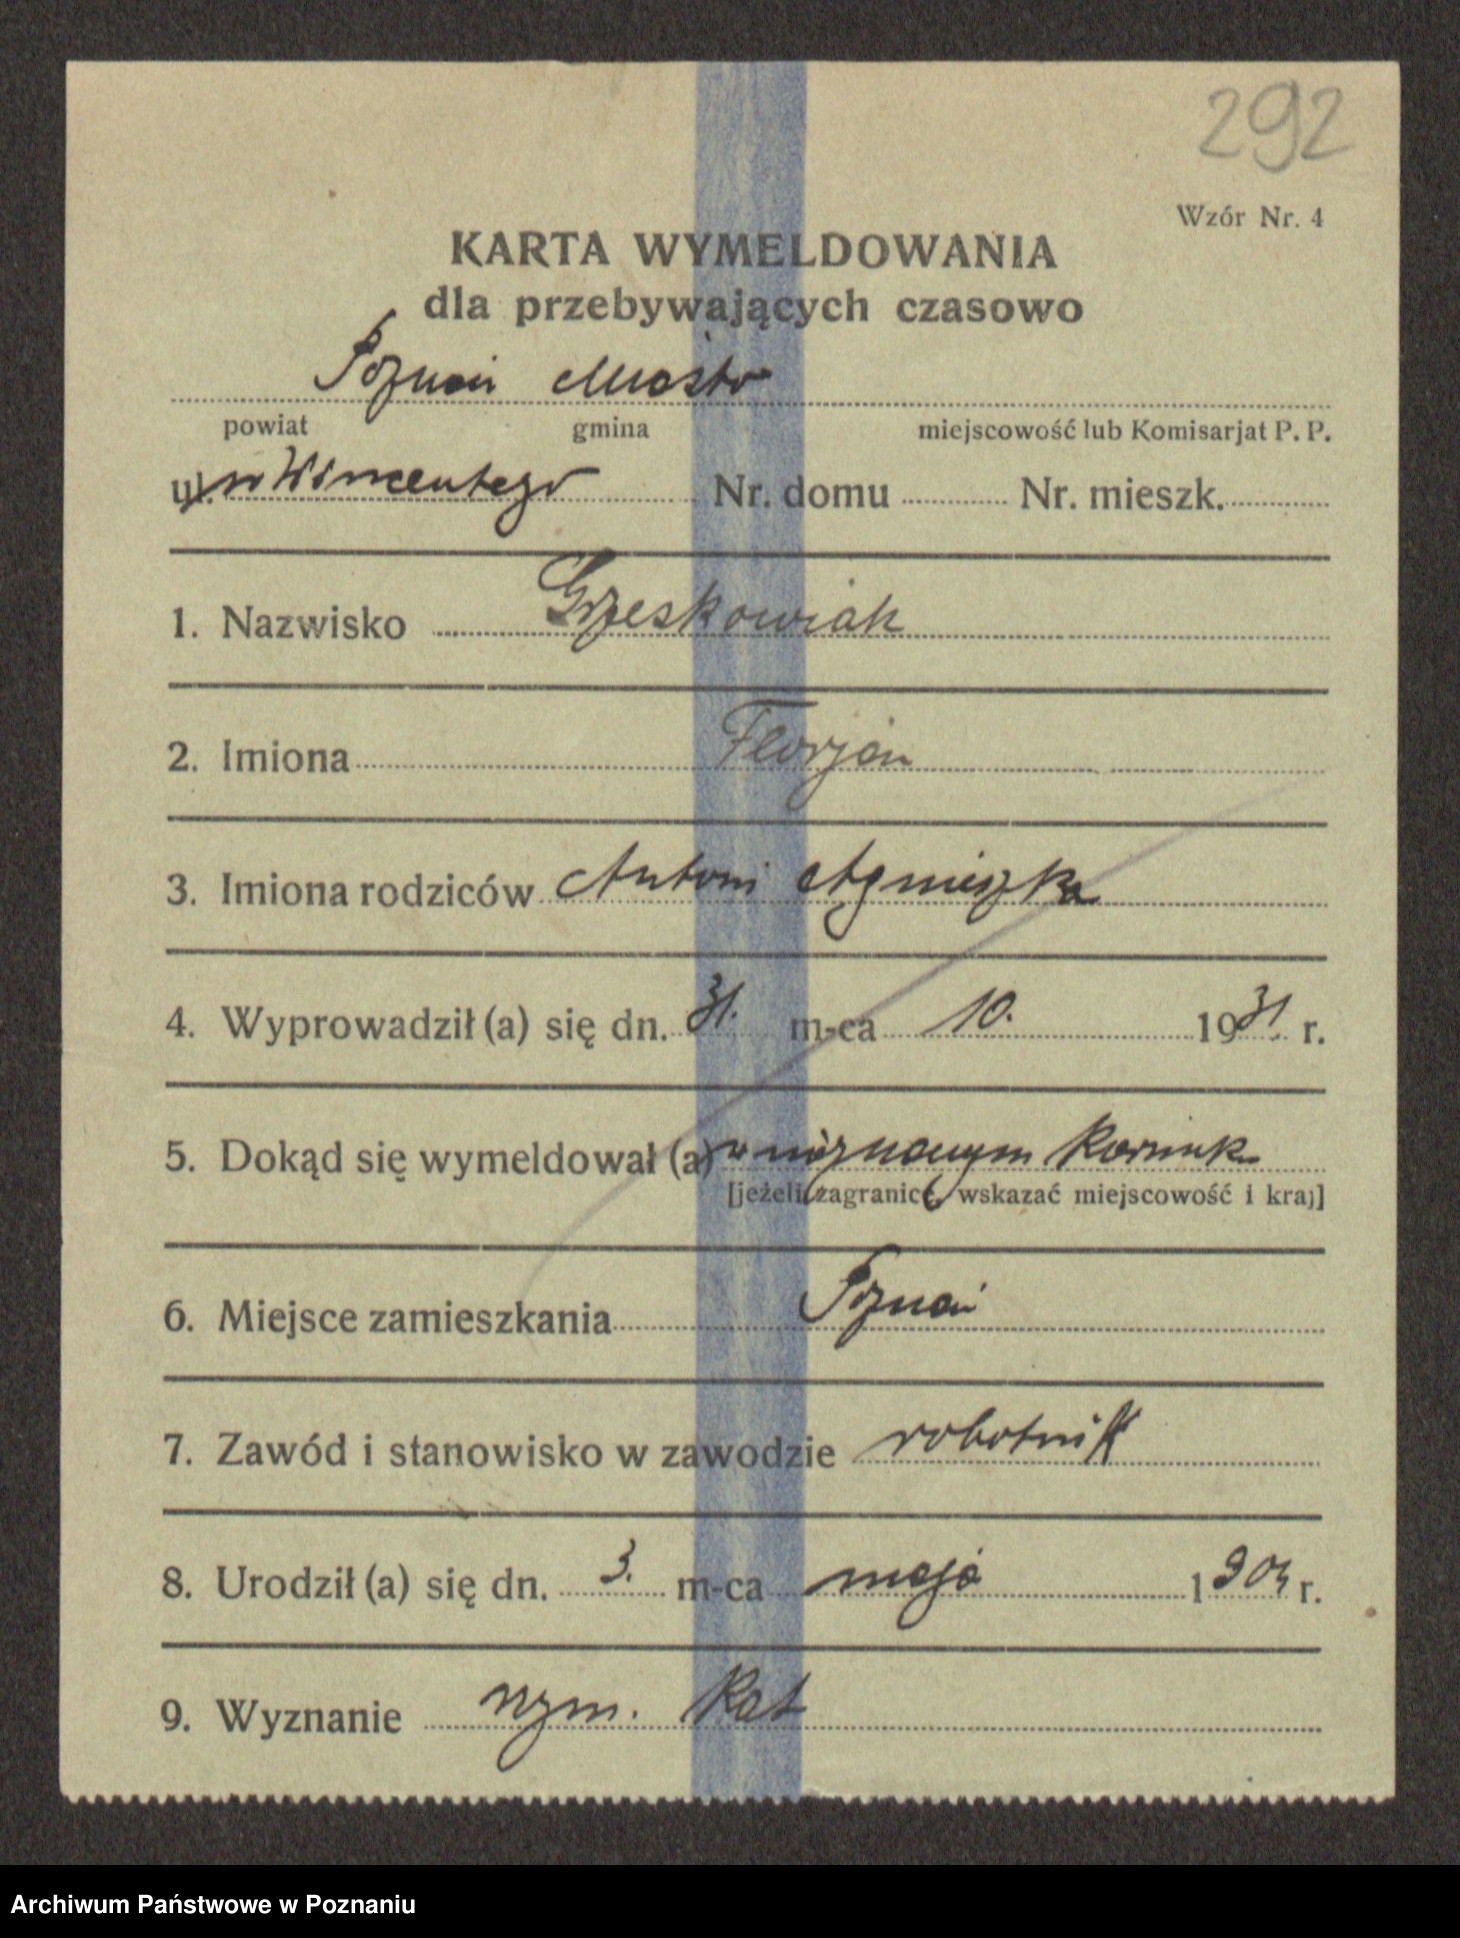 292
Wzór Nr. 4
KARTA WYMELDOWANIA
dla przebywających czasowo
Poznań Miasto
powiat gmina miejscowość lub Komisarjat P. P.
ul. św Wincentego Nr. domu Nr. mieszk.
1. Nazwisko Grzeskowiak
2. Imiona Florjan
3. Imiona rodziców Antoni Agnieszka
4. Wyprowadził (a) się dn. 31. m-ca 10. 1931 r.
5. Dokąd się wymeldował (a) w nieznanym kierunk
[jeżeli zagranicę, wskazać miejscowość i kraj]
6. Miejsce zamieszkania Poznań
7. Zawód i stanowisko w zawodzie robotnik
8. Urodził (a) się dn. 3. m-ca maja 1904 r.
9. Wyznanie rzm. kat
Archiwum Państwowe w Poznaniu